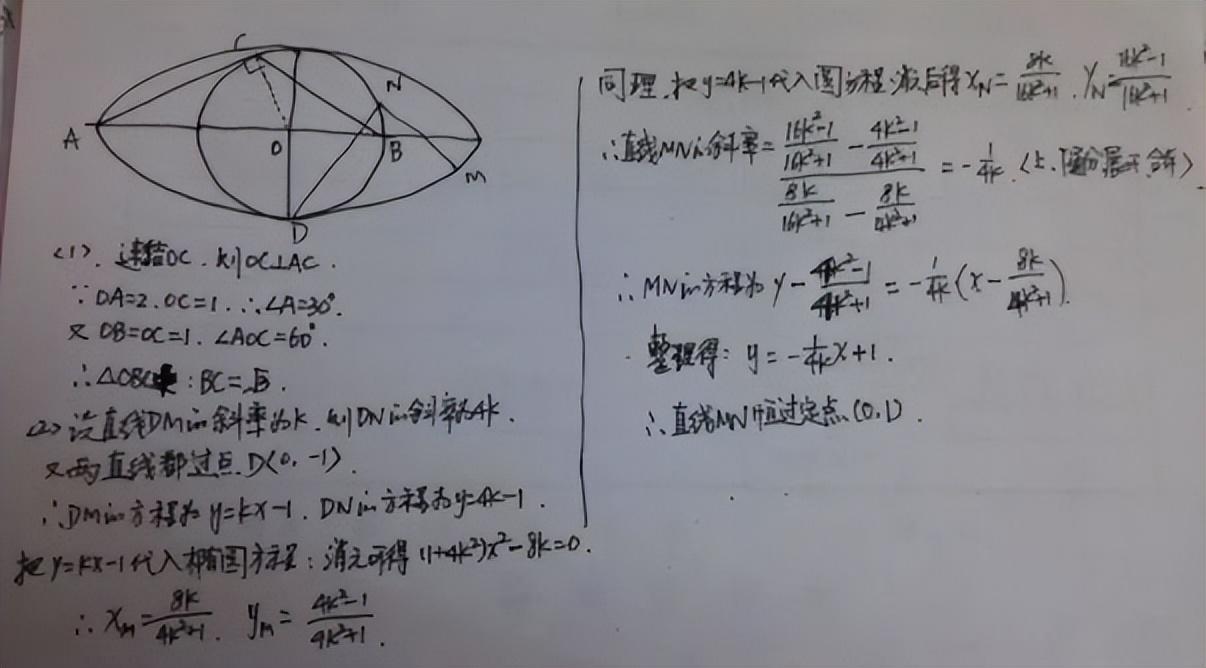 C
N
A
O
B
M
D
<1>. 连结OC. 则OC⊥AC.
∵ OA=2. OC=1. ∴∠A=30°.
又 OB=OC=1. ∠AOC=60°.
∴△OBC : BC=√3.
<2> 设直线DM的斜率为k. 则DN的斜率为4k.
又两直线都过点D(0, -1).
∴DM的方程为 y=kx-1. DN的方程为y=4k-1.
把y=kx-1代入椭圆方程: 消元可得 (1+4k²)x²-8k=0.
∴ x_m=8k/(4k²+1). y_m=(4k²-1)/(4k²+1).
同理. 把y=4k-1代入圆方程.消后得x_N=8k/(16k²+1). y_N=(16k²-1)/(16k²+1)
∴直线MN的斜率=((16k²-1)/(16k²+1) - (4k²-1)/(4k²+1))/(8k/(16k²+1) - 8k/(4k²+1)) = -1/4k.
∴ MN的方程为 y-(4k²-1)/(4k²+1)=-1/4k(x-8k/(4k²+1)).
整理得: y=-1/4k x+1.
∴直线MN恒过定点(0,1).